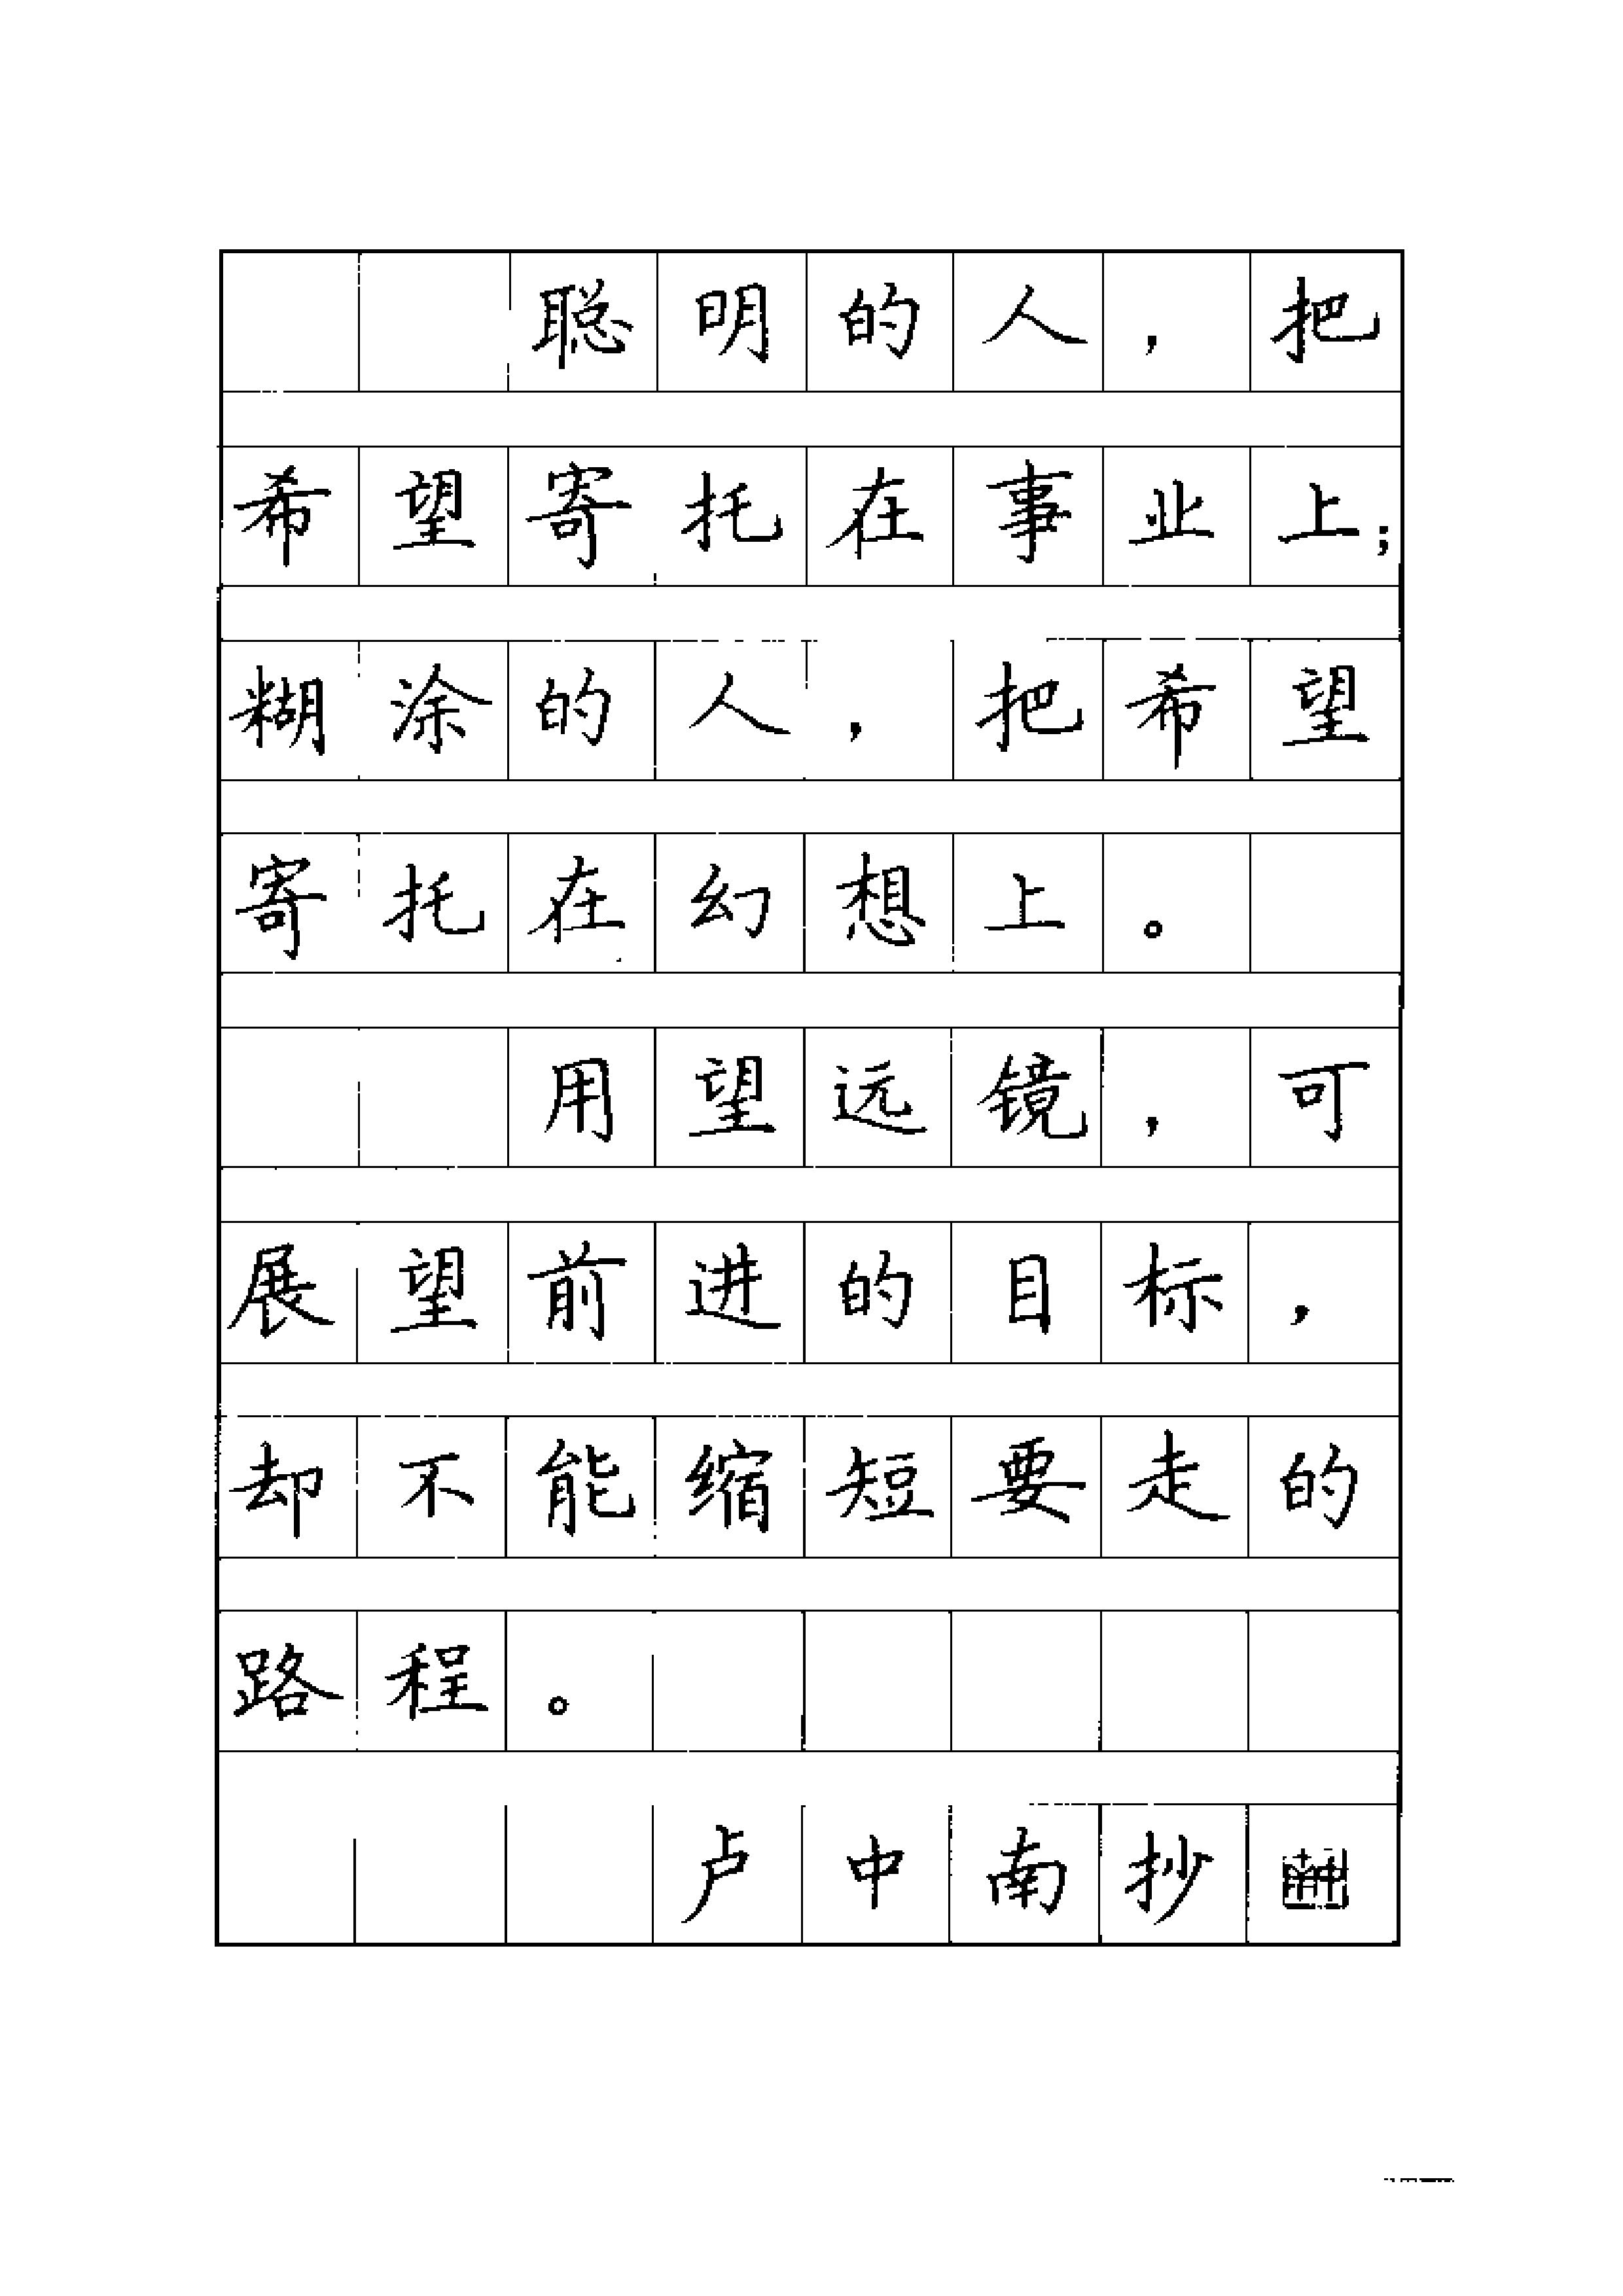 聪明的人，把
希望寄托在事业上；
糊涂的人，把希望
寄托在幻想上。
用望远镜，可
展望前进的目标，
却不能缩短要走的
路程。
卢中南抄